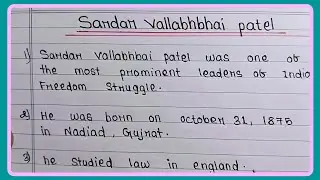 Sardar Vallabhbhai patel
1) Sardar Vallabhbai patel was one of
the most prominent leaders of Indio
Freedom Struggle.
2) He was born on october 31, 1875
in Nadiad, Gujrat.
3) he studied law in england.